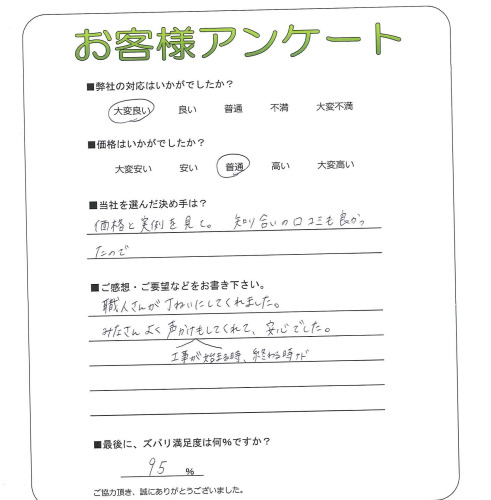 お客様アンケート
■弊社の対応はいかがでしたか？
大変良い 良い 普通 不満 大変不満
■価格はいかがでしたか？
大変安い 安い 普通 高い 大変高い
■当社を選んだ決め手は？
価格と実例を見て。 知り合いの口コミも良かっ
たので
■ご感想・ご要望などをお書き下さい。
職人さんが丁ねいにしてくれました。
みなさんよく声かけもしてくれて、安心でした。
工事が始まる時、終わる時など
■最後に、ズバリ満足度は何％ですか？
95 ％
ご協力頂き、誠にありがとうございました。